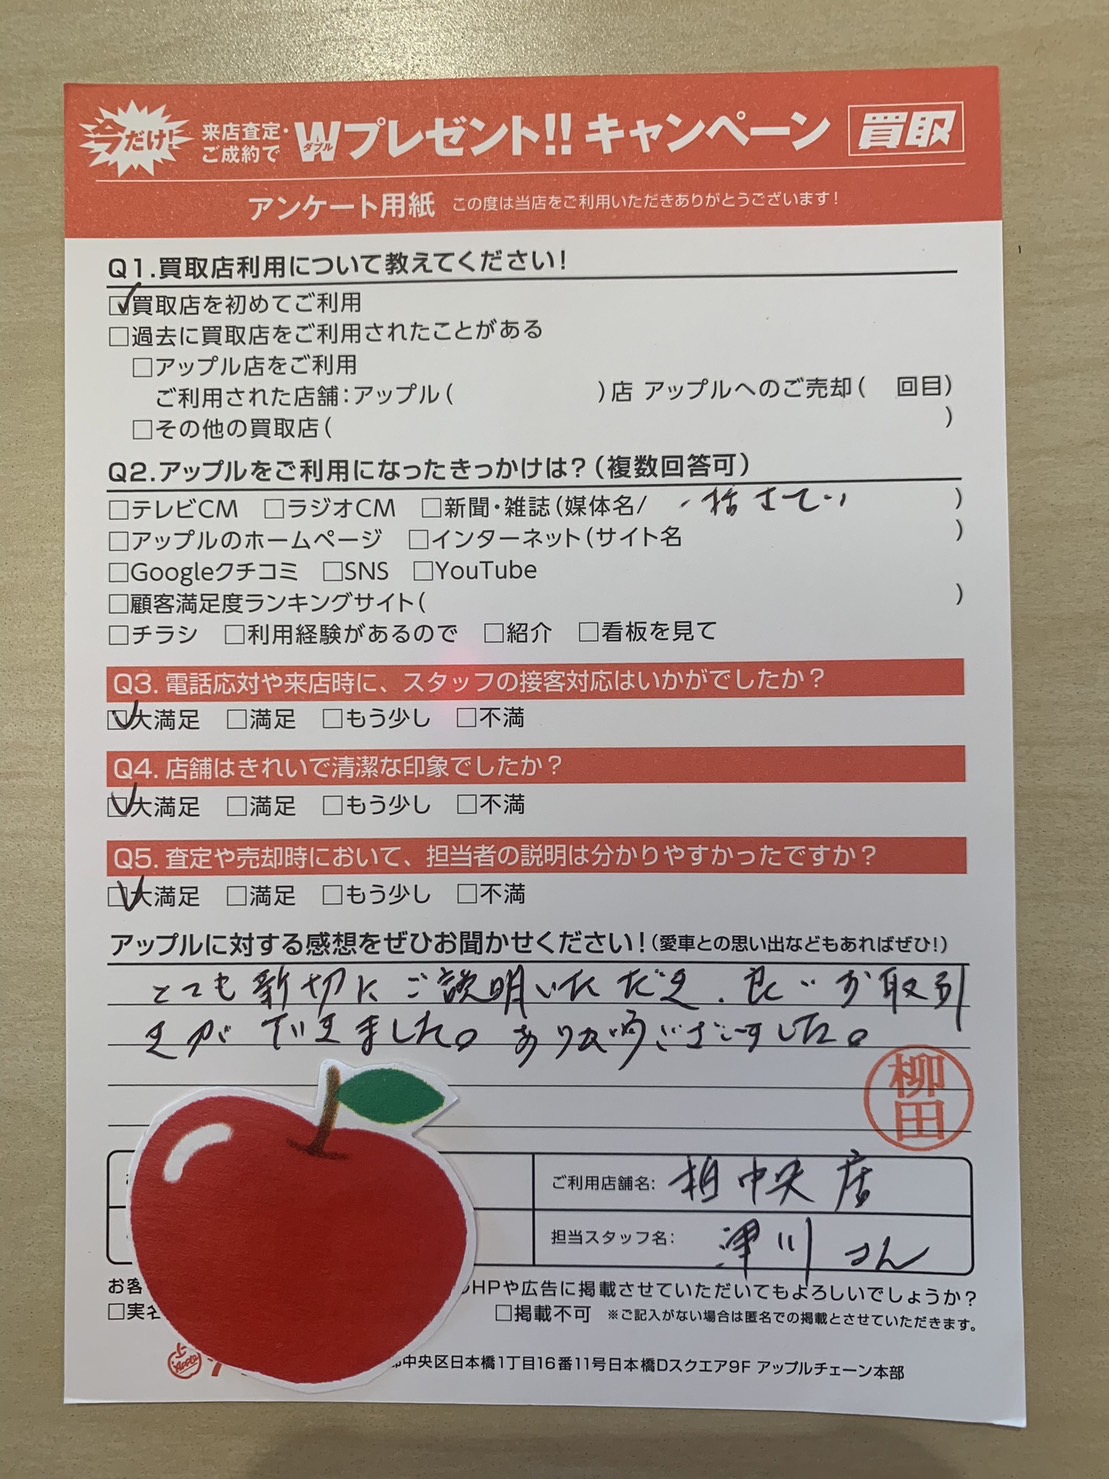 今だけ!
来店査定・ご成約で Wダブルプレゼント!! キャンペーン 買取
アンケート用紙 この度は当店をご利用いただきありがとうございます!
Q1.買取店利用について教えてください!
☑買取店を初めてご利用
□過去に買取店をご利用されたことがある
□アップル店をご利用
ご利用された店舗:アップル( )店 アップルへのご売却( 回目)
□その他の買取店( )
Q2.アップルをご利用になったきっかけは?(複数回答可)
□テレビCM □ラジオCM □新聞・雑誌(媒体名/ 一括さてい )
□アップルのホームページ □インターネット(サイト名 )
□Googleクチコミ □SNS □YouTube
□顧客満足度ランキングサイト( )
□チラシ □利用経験があるので □紹介 □看板を見て
Q3. 電話応対や来店時に、スタッフの接客対応はいかがでしたか?
☑大満足 □満足 □もう少し □不満
Q4. 店舗はきれいで清潔な印象でしたか?
☑大満足 □満足 □もう少し □不満
Q5. 査定や売却時において、担当者の説明は分かりやすかったですか?
☑大満足 □満足 □もう少し □不満
アップルに対する感想をぜひお聞かせください!(愛車との思い出などもあればぜひ!)
とても親切にご説明いただき、良いお取引
きができました。ありがとうございました。
柳田
ご利用店舗名: 柏中央店
担当スタッフ名: 津川さん
お客 HPや広告に掲載させていただいてもよろしいでしょうか?
□実名 □掲載不可 ※ご記入がない場合は匿名での掲載とさせていただきます。
Apple 中央区日本橋1丁目16番11号日本橋Dスクエア9F アップルチェーン本部